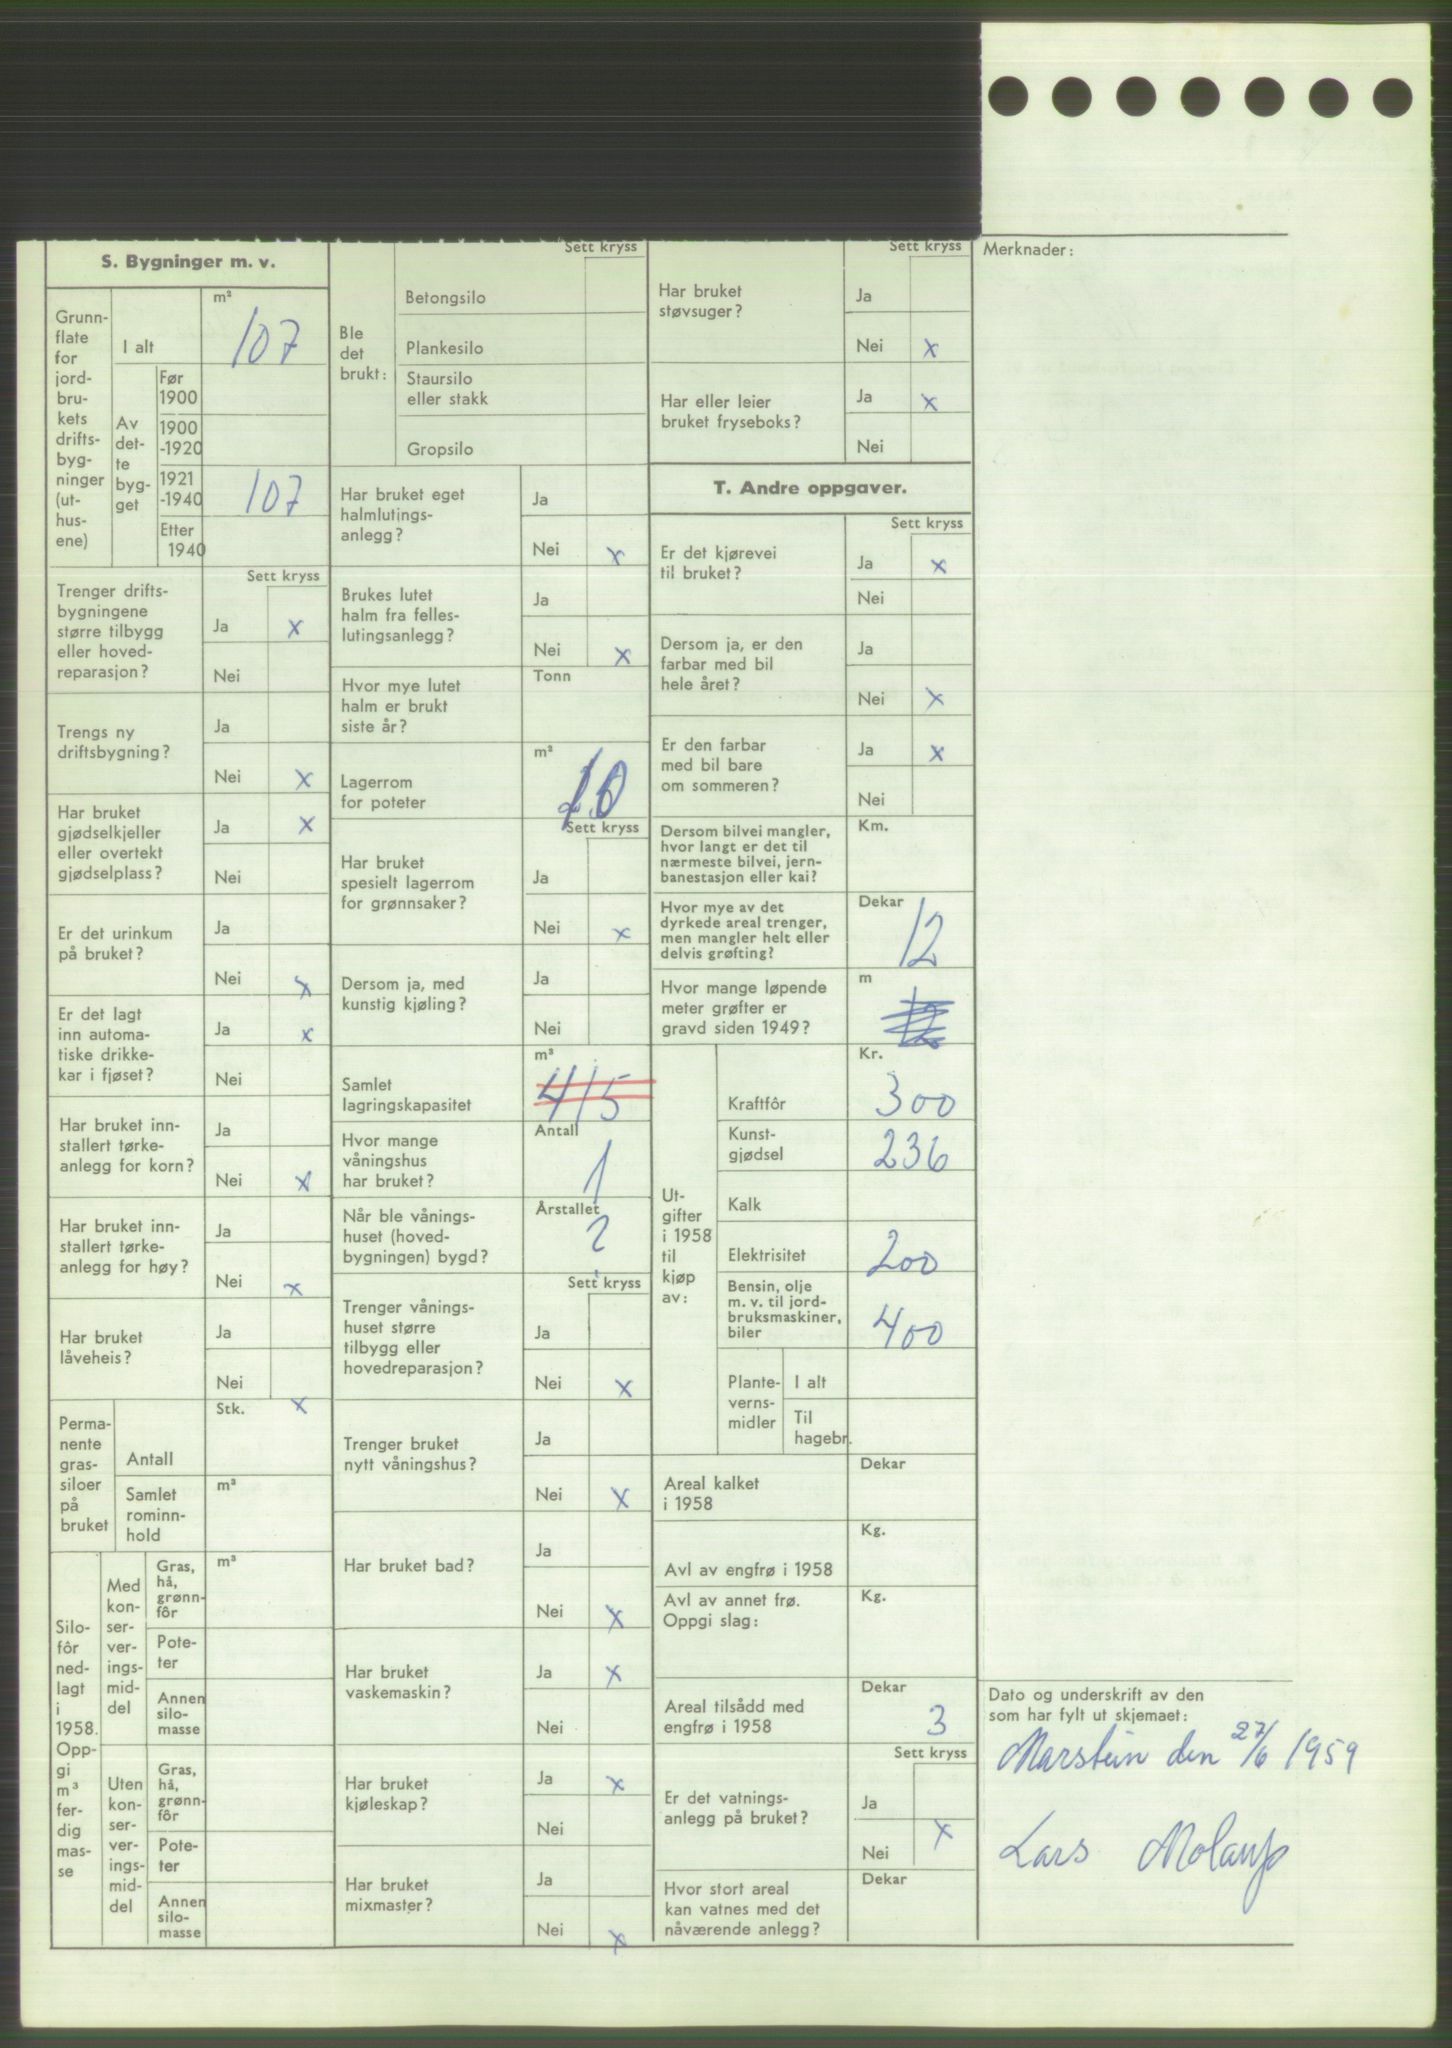 S. Bygninger m. v.
Grunn-
flate
for
jord-
bru-
kets
drifts-
byg-
ninger
(ut-
hus-
ene)
I alt
m²
107
Av
det-
te
byg-
get
Før
1900
1900
-1920
1921
-1940
107
Etter
1940
Sett kryss
Trenger drifts-
bygningene
større tilbygg
eller hoved-
reparasjon?
Ja x
Nei
Trengs ny
driftsbygning?
Ja
Nei x
Har bruket
gjødselkjeller
eller overtekt
gjødselplass?
Ja x
Nei
Er det urinkum
på bruket?
Ja
Nei x
Er det lagt
inn automa-
tiske drikke-
kar i fjøset?
Ja x
Nei
Har bruket inn-
stallert tørke-
anlegg for korn?
Ja
Nei x
Har bruket inn-
stallert tørke-
anlegg for høy?
Ja
Nei x
Har bruket
låveheis?
Ja
Nei
x
Perma-
nente
gras-
siloer
på
bruket
Antall
Stk.
Samlet
rominn-
hold
m³
Silo-
fôr
ned-
lagt
i
1958.
Opp-
gi
m³
fer-
dig
mas-
se
Med
kon-
ser-
ver-
ings-
mid-
del
Gras,
hå,
grønn-
fôr
m³
Pote-
ter
Annen
silo-
masse
Uten
kon-
ser-
ver-
ings-
mid-
del
Gras,
hå,
grønn-
fôr
Pote-
ter
Annen
silo-
masse
Sett kryss
Ble
det
brukt:
Betongsilo
Plankesilo
Staursilo
eller stakk
Gropsilo
Har bruket eget
halmlutings-
anlegg?
Ja
Nei x
Brukes lutet
halm fra felles-
lutingsanlegg?
Ja
Nei x
Hvor mye lutet
halm er brukt
siste år?
Tonn
Lagerrom
for poteter
m³
Sett kryss
Har bruket
spesielt lagerrom
for grønnsaker?
Ja
Nei x
Dersom ja, med
kunstig kjøling?
Ja
Nei
Samlet
lagringskapasitet
m³
415
Hvor mange
våningshus
har bruket?
Antall
1
Når ble vånings-
huset (hoved-
bygningen) bygd?
Årstallet
?
Sett kryss
Trenger vånings-
huset større
tilbygg eller
hovedreparasjon?
Ja
Nei x
Trenger bruket
nytt våningshus?
Ja
Nei x
Har bruket bad?
Ja
Nei x
Har bruket
vaskemaskin?
Ja x
Nei
Har bruket
kjøleskap?
Ja x
Nei
Har bruket
mixmaster?
Ja
Nei x
Sett kryss
Har bruket
støvsuger?
Ja
Nei x
Har eller leier
bruket fryseboks?
Ja x
Nei
T. Andre oppgaver.
Sett kryss
Er det kjørevei
til bruket?
Ja x
Nei
Dersom ja, er den
farbar med bil
hele året?
Ja
Nei x
Er den farbar
med bil bare
om sommeren?
Ja x
Nei
Dersom bilvei mangler,
hvor langt er det til
nærmeste bilvei, jern-
banestasjon eller kai?
Km.
Hvor mye av det
dyrkede areal trenger,
men mangler helt eller
delvis grøfting?
Dekar
12
Hvor mange løpende
meter grøfter er
gravd siden 1949?
m
Ut-
gifter
i 1958
til
kjøp
av:
Kr.
Kraftfôr 300
Kunst-
gjødsel 236
Kalk
Elektrisitet 200
Bensin, olje
m. v. til jord-
bruksmaskiner,
biler
400
Plante-
verns-
midler
I alt
Til
hagebr.
Areal kalket
i 1958
Dekar
Avl av engfrø i 1958
Kg.
Avl av annet frø.
Oppgi slag:
Kg.
Areal tilsådd med
engfrø i 1958
Dekar
3
Sett kryss
Er det vatnings-
anlegg på bruket?
Ja
Nei x
Hvor stort areal
kan vatnes med det
nåværende anlegg?
Dekar
Merknader:
Dato og underskrift av den
som har fylt ut skjemaet:
Marstein den 27/6 1959
Lars